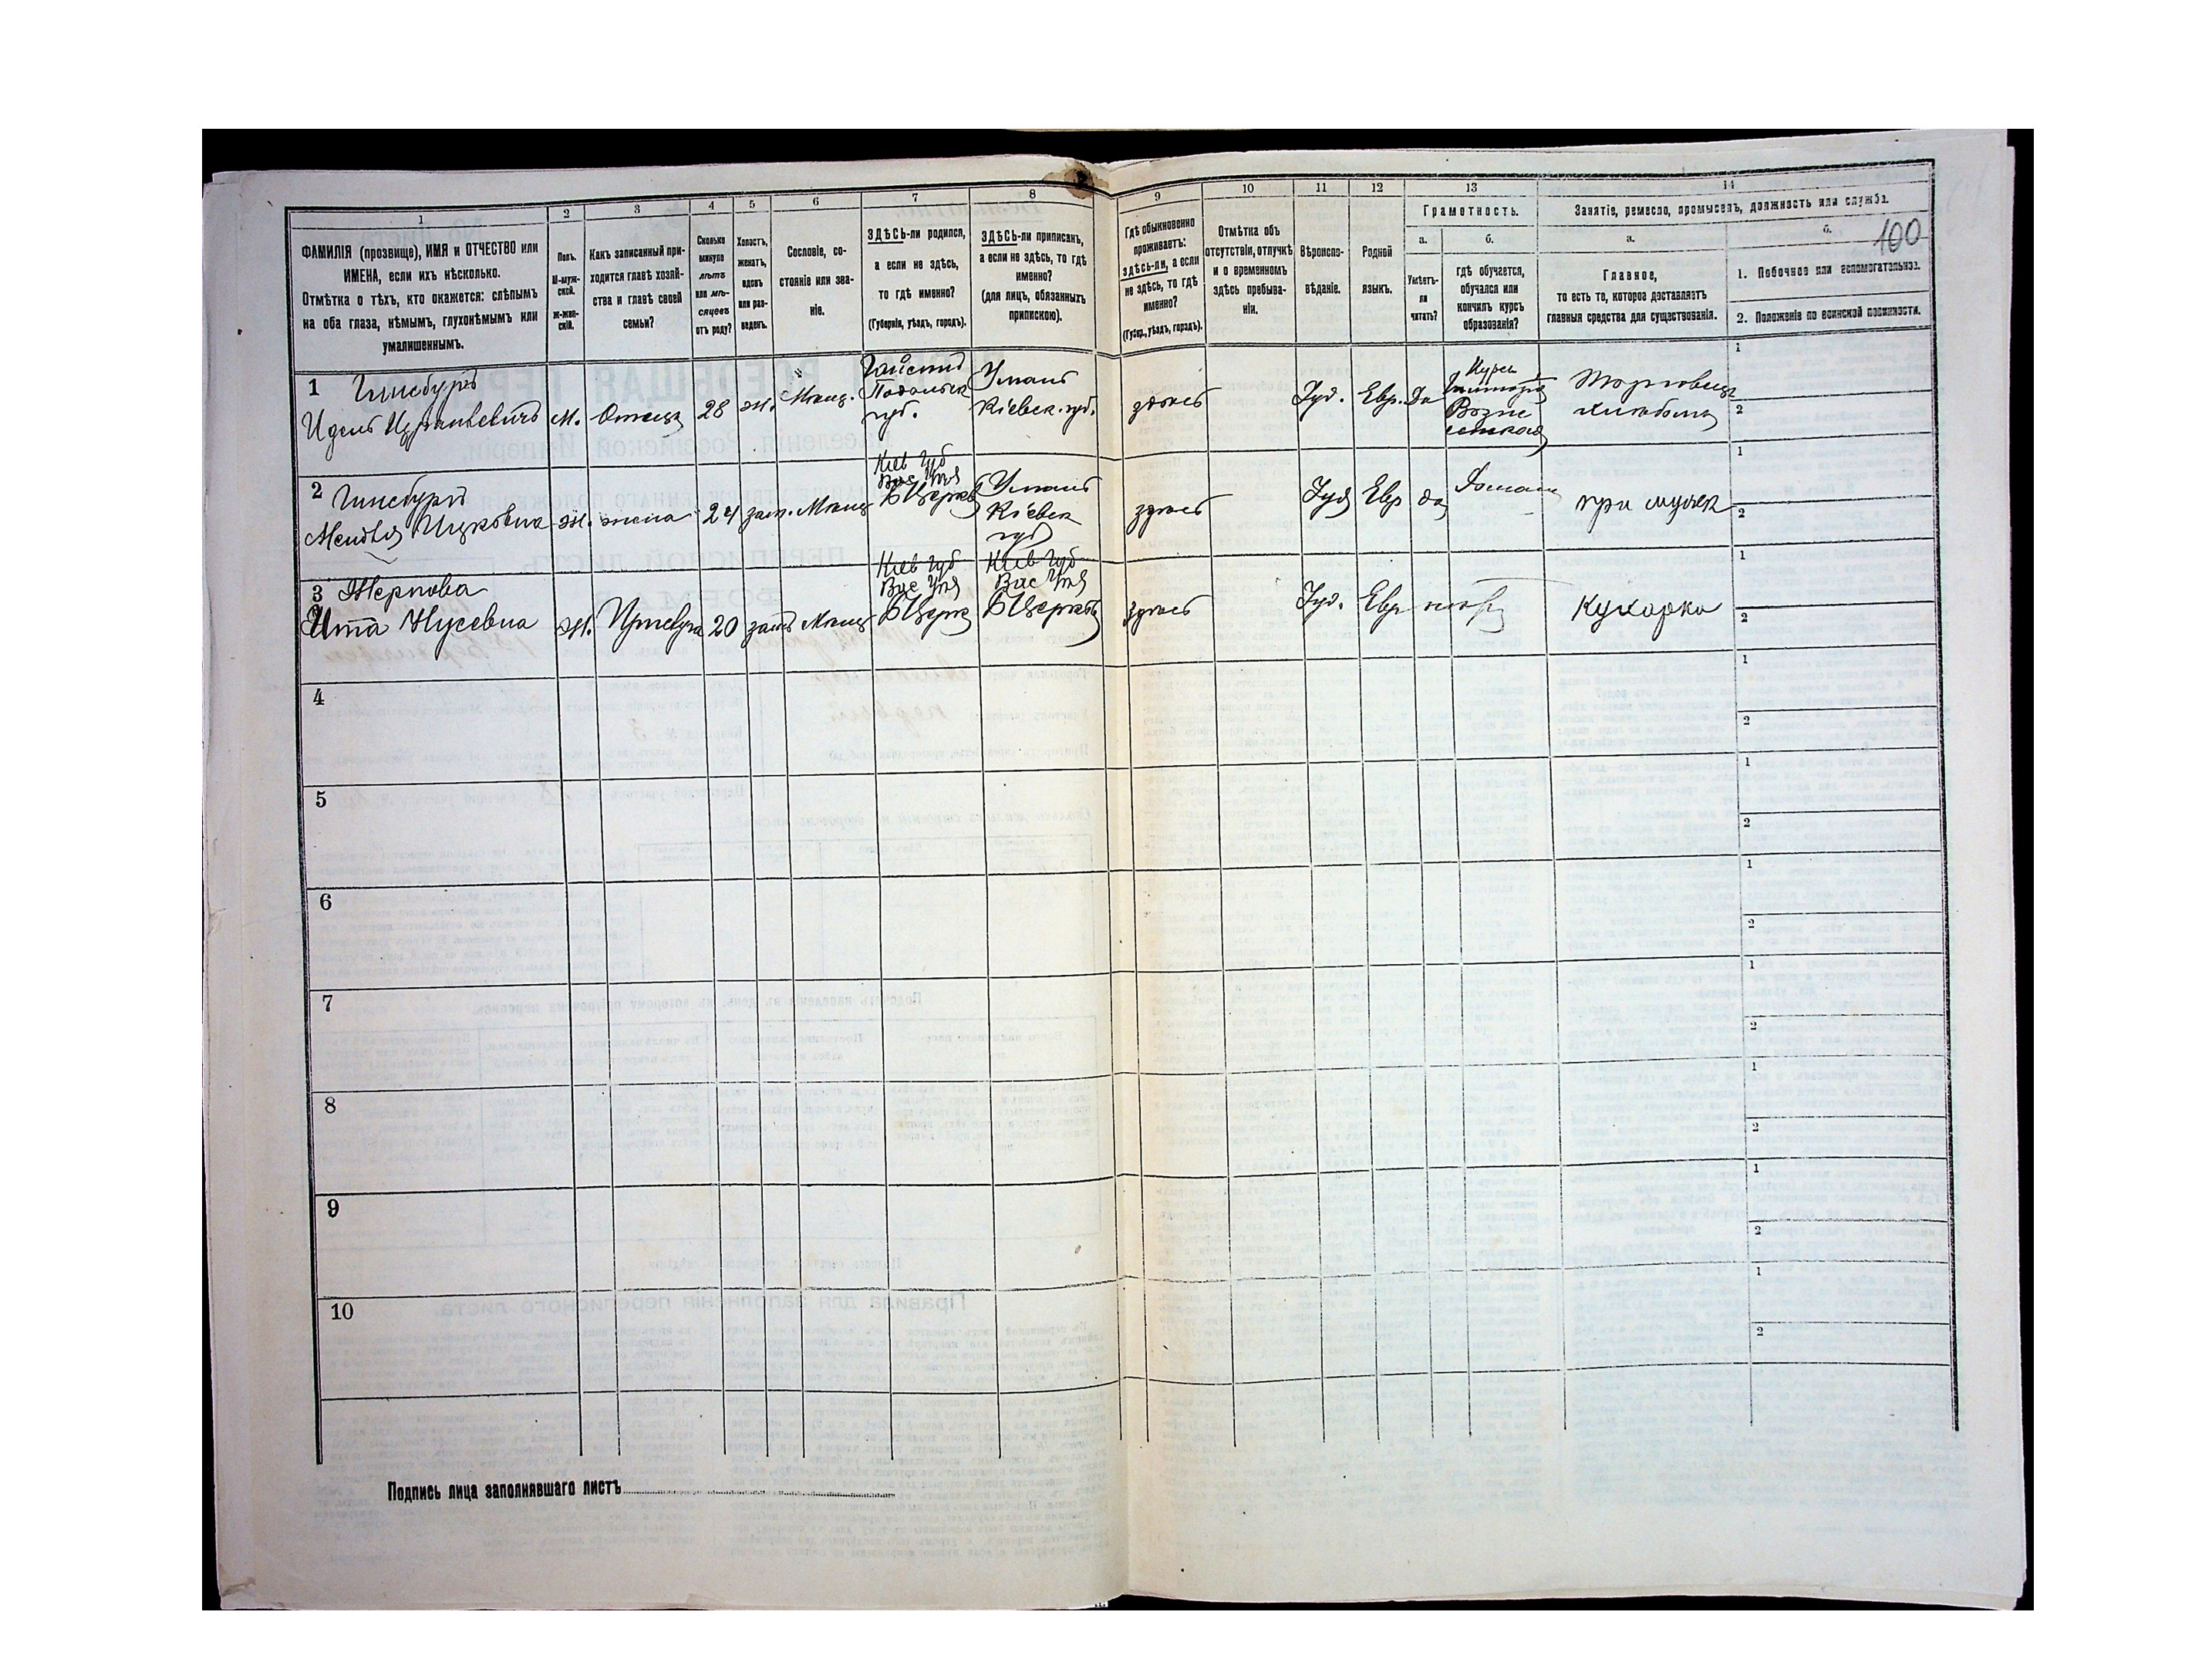 1
2
3
4
5
6
7
8
9
10
11
12
13
14
ФАМИЛІЯ (прозвище), ИМЯ и ОТЧЕСТВО или
ИМЕНА, если ихъ нѣсколько.
Отмѣтка о тѣхъ, кто окажется: слѣпымъ
на оба глаза, нѣмымъ, глухонѣмымъ или
умалишеннымъ.
Полъ.
М-муж-
ской.
Ж-жен-
скій.
Какъ записанный при-
ходится главѣ хозяй-
ства и главѣ своей
семьи?
Сколько
минуло
лѣтъ
или мѣ-
сяцевъ
отъ роду?
Холостъ,
женатъ,
вдовъ
или раз-
веденъ.
Сословіе, со-
стояніе или зва-
ніе.
ЗДѢСЬ-ли родился,
а если не здѣсь,
то гдѣ именно?
(Губернія, уѣздъ, городъ).
ЗДѢСЬ-ли приписанъ,
а если не здѣсь, то гдѣ
именно?
(для лицъ, обязанныхъ
припискою).
Гдѣ обыкновенно
проживаетъ:
здѣсь-ли, а если
не здѣсь, то гдѣ
именно?
(Губер., уѣздъ, городъ).
Отмѣтка объ
отсутствіи, отлучкѣ
и о временномъ
здѣсь пребыва-
ніи.
Вѣроиспо-
вѣданіе.
Родной
языкъ.
Грамотность.
а.
б.
Умѣетъ-
ли
читать?
гдѣ обучается,
обучался или
кончилъ курсъ
образованія?
Занятіе, ремесло, промыселъ, должность или служба.
а.
б.
100
Главное,
то есть то, которое доставляетъ
главныя средства для существованія.
1. Побочное или вспомогательное.
2. Положеніе по воинской повинности.
1 Гинсбургъ
Идель Израильевичъ
м.
Отецъ
28
ж.
Мѣщ.
Подольск
губ.
Умань
Кіевск. губ.
здѣсь
Іуд.
Евр.
да
Курсъ
Торговецъ
хлѣбомъ
1
2
2 Гинсбургъ
Ицковна
ж.
жена
24
зам.
Мѣщ
Кіев Губ
Вас Уѣз
БЦерковь
Умань
Кіевск
губ
здѣсь
Іуд
Евр
да
Домаш
при мужѣ
1
2
3
Ита Нусевна
ж.
Прислуга
20
зам
Мѣщ
Кіев Губ
Вас Уѣз
БЦерк
Кіев Губ
Вас Уѣз
БЦерковь
здѣсь
Іуд.
Евр
Кухарка
1
2
4
1
2
5
1
2
6
1
2
7
1
2
8
1
2
9
1
2
10
1
2
Подпись лица заполнявшаго листъ